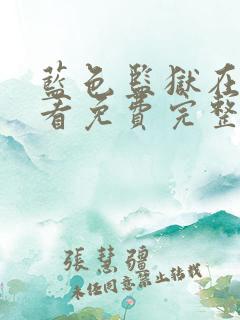 藍色監獄在
看免費完整
張慧疆
未经同意禁止转载